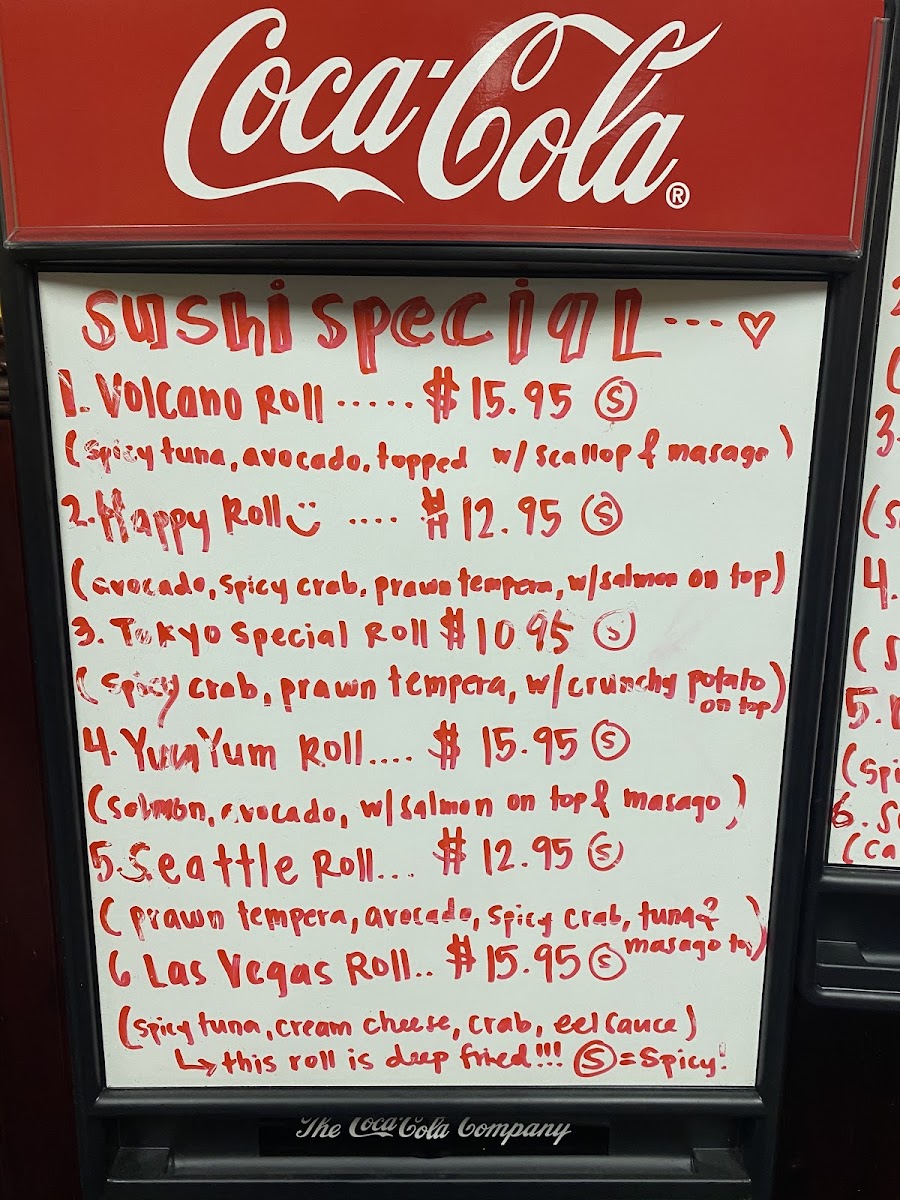 Coca-Cola®
Sushi Special --- ♡
1. Volcano Roll ..... $15.95 Ⓢ
(spicy tuna, avocado, topped w/ scallop & masago)
2. Happy Roll .... $12.95 Ⓢ
(avocado, spicy crab, prawn tempera, w/salmon on top)
3. Tokyo Special Roll $10 95 Ⓢ
(spicy crab, prawn tempera, w/crunchy potato
on top)
4. YumYum Roll.... $15.95 Ⓢ
(Salmon, avocado, w/salmon on top & masago)
5. Seattle Roll... $12.95 Ⓢ
(prawn tempera, avocado, spicy crab, tuna &
masago top)
6 Las Vegas Roll.. $15.95 Ⓢ
(spicy tuna, cream cheese, crab, eel sauce)
↳ this roll is deep fried!!! Ⓢ = Spicy!
The Coca-Cola Company
3.
(S
4.
(S
5.
(spi
6. S
(ca